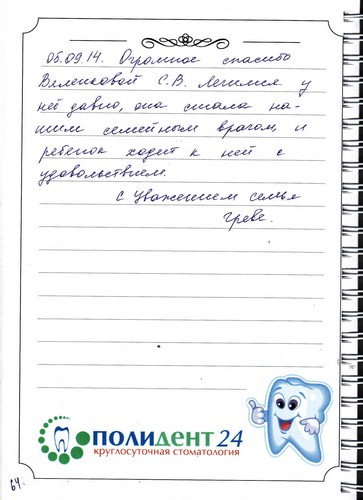 05.09.14. Огромное спасибо
Валенковой С.В. Лечимся у
неё давно, она стала на-
шим семейным врагом, и
ребёнок ходит к ней с
удовольствием.
С уважением семья
Греве.
ПОЛИДЕНТ 24
круглосуточная стоматология
64